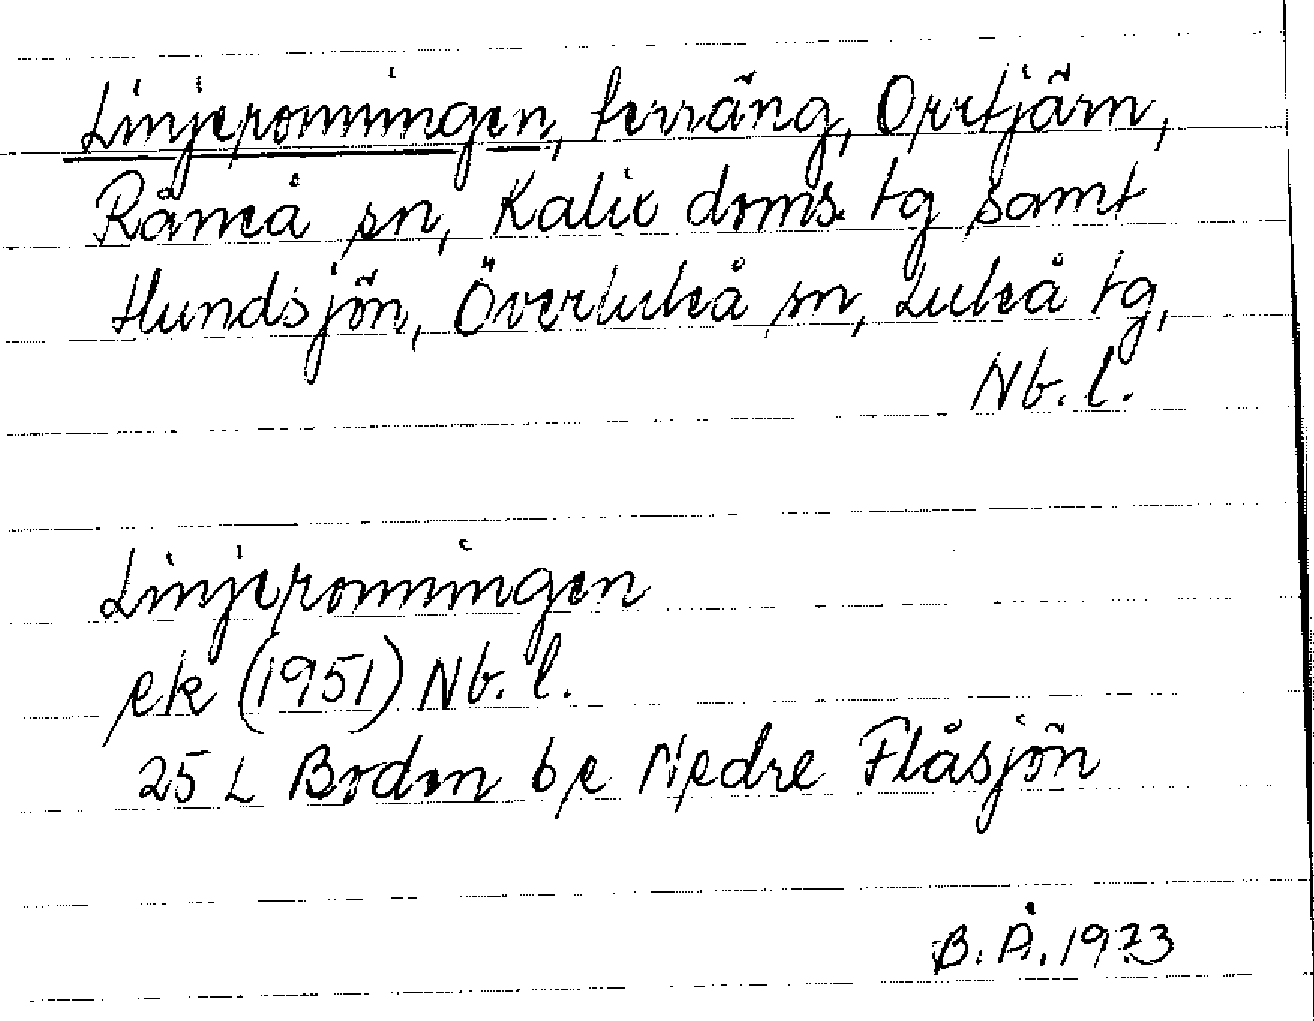 Linjeronningen, terräng, Orrtjärn,
Råneå sn, Kalix doms. tg samt
Hundsjön, Överluleå sn, Luleå tg,
Nb. l.
Linjeronningen
ek (1951) Nb. l.
25 L Boden be Nedre Flåsjön
B. Å. 1973